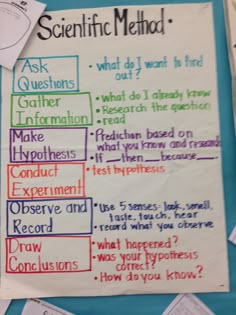 Scientific Method.
Ask Questions
• what do I want to find out?
Gather Information
• what do I already know
• Research the question
• read
Make Hypothesis
• Prediction based on what you know and research
• If ___ then ___ because ___.
Conduct Experiment
• test hypothesis
Observe and Record
• use 5 senses- look, smell, taste, touch, hear
• record what you observe
Draw Conclusions
• what happened?
• was your hypothesis correct?
• How do you know?